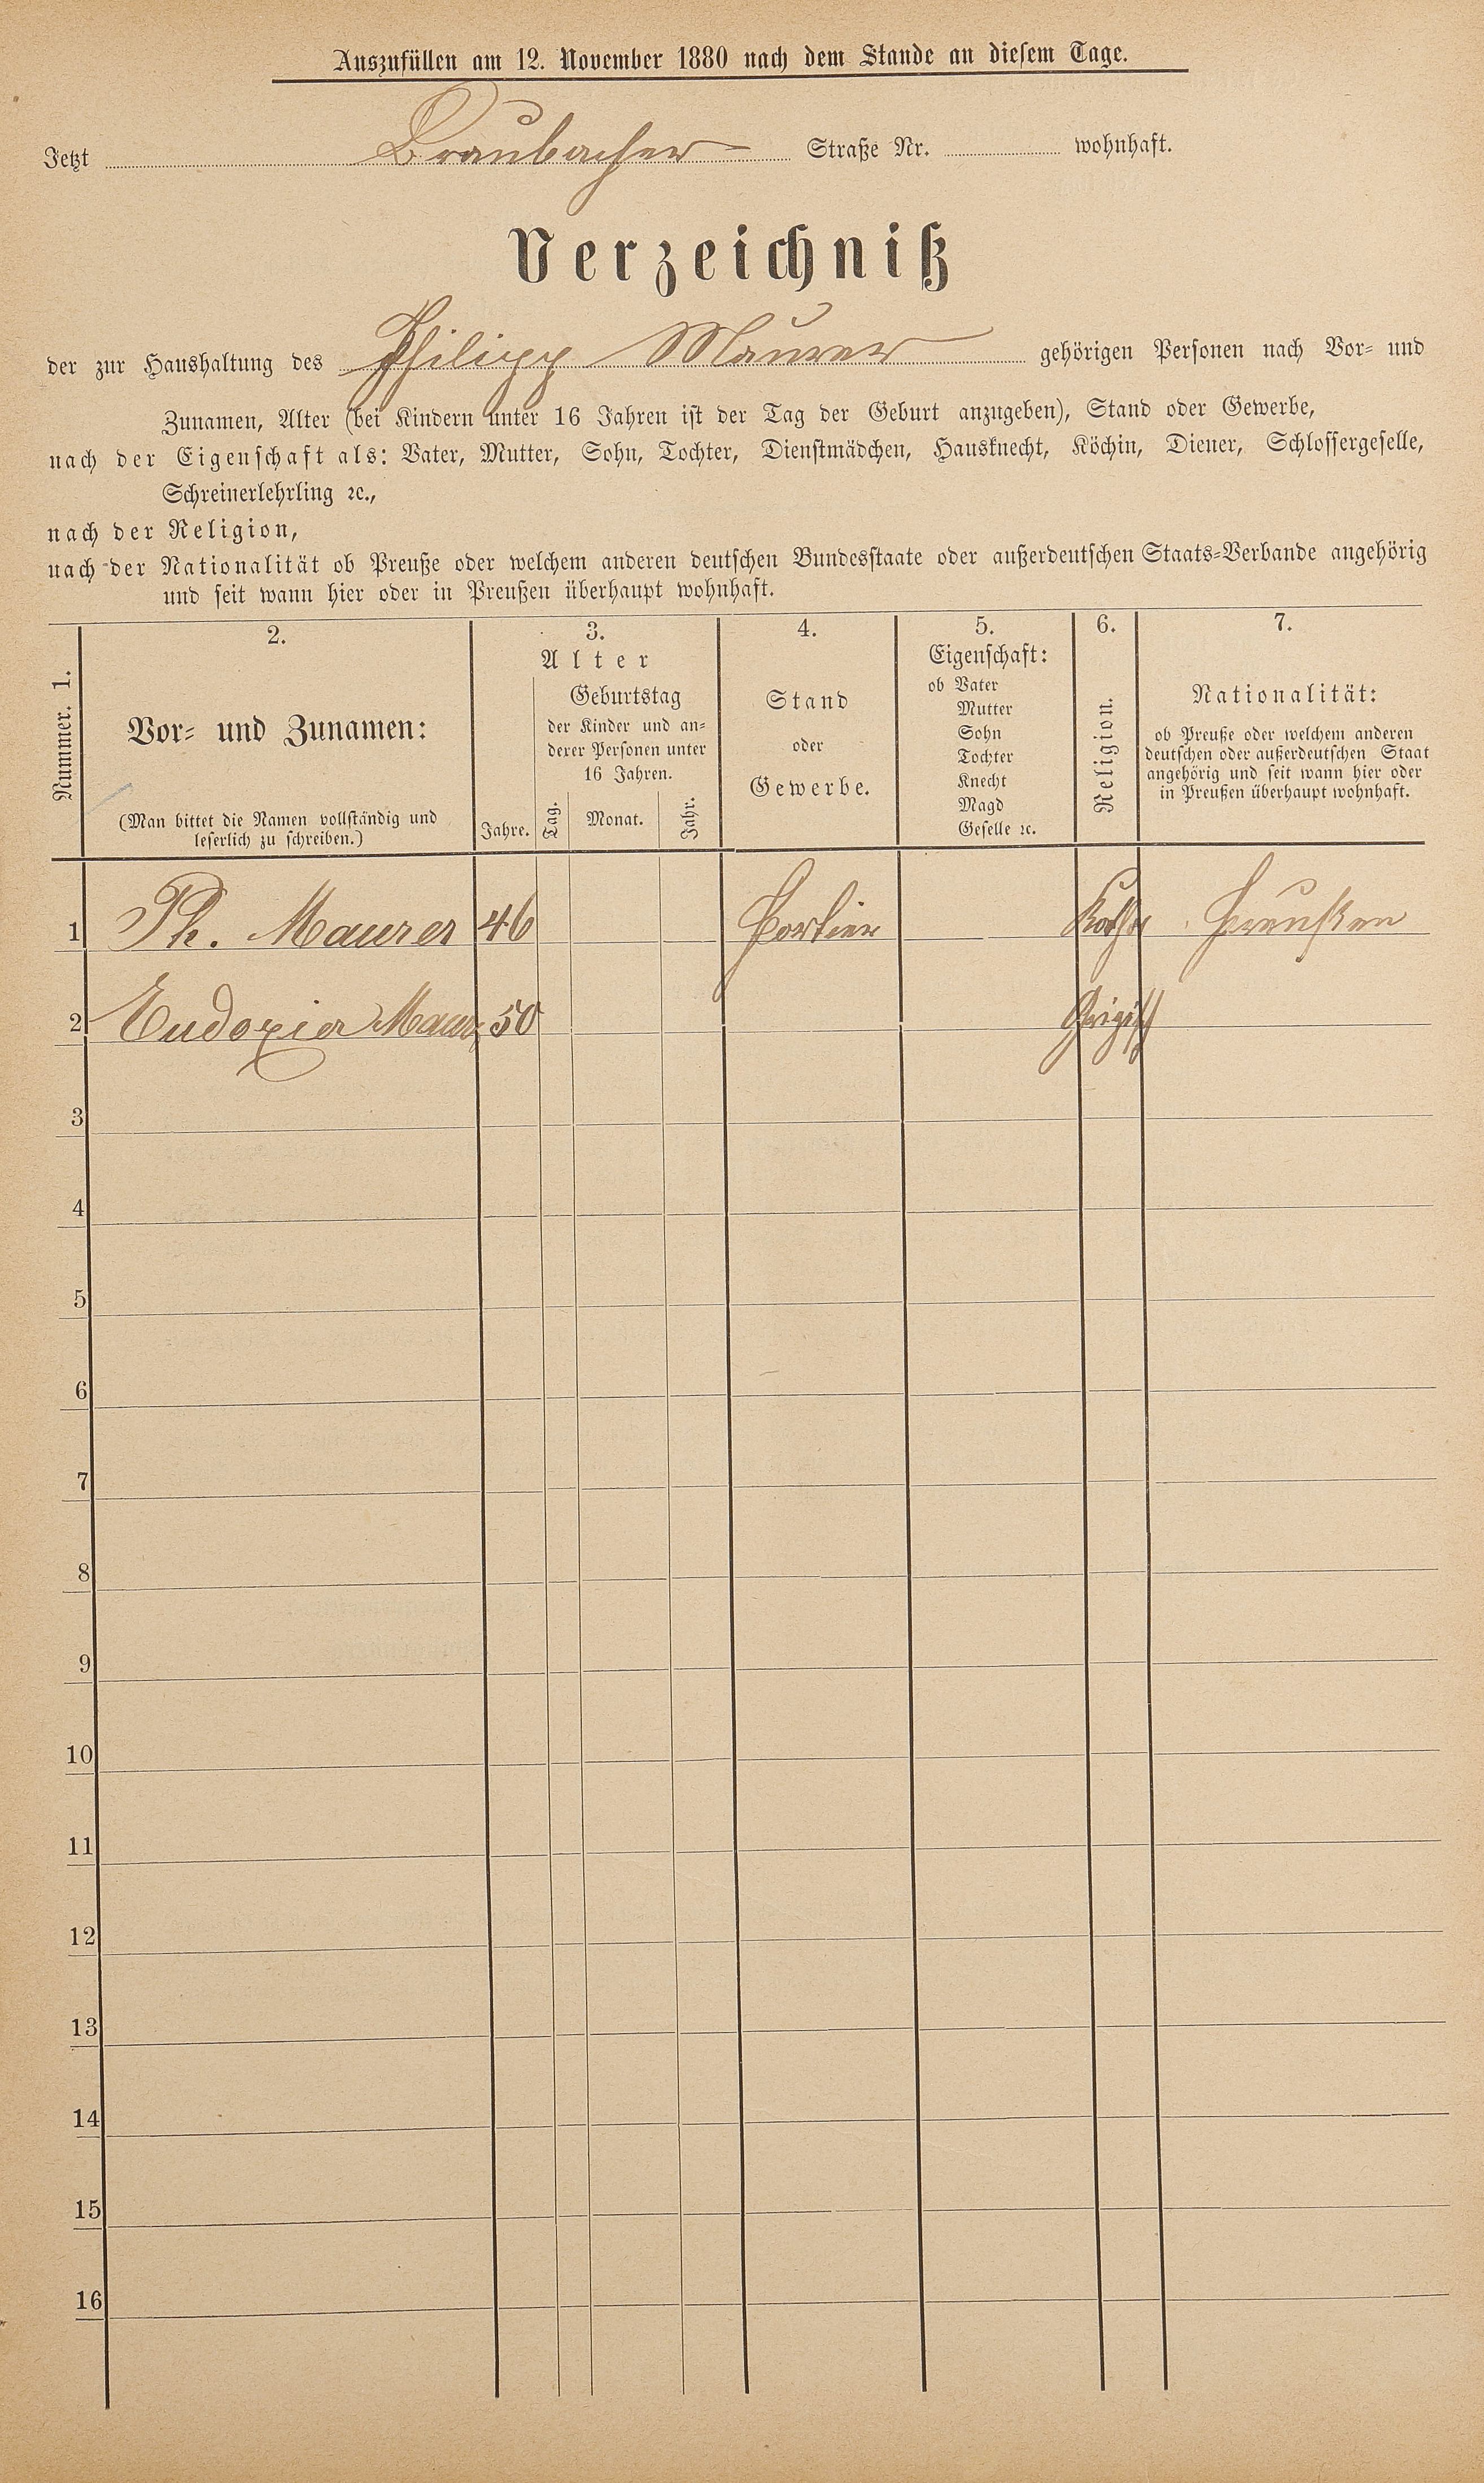 Auszufüllen am 12. November 1880 nach dem Stande an diesem Tage.
Jetzt Braubacher Straße Nr. wohnhaft.
Verzeichniß
der zur Haushaltung des Philipp Maurer gehörigen Personen nach Vor- und
Zunamen, Alter (bei Kindern unter 16 Jahren ist der Tag der Geburt anzugeben), Stand oder Gewerbe,
nach der Eigenschaft als: Vater, Mutter, Sohn, Tochter, Dienstmädchen, Hausknecht, Köchin, Diener, Schlossergeselle,
Schreinerlehrling ꝛc.,
nach der Religion,
nach der Nationalität ob Preuße oder welchem anderen deutschen Bundesstaate oder außerdeutschen Staats-Verbande angehörig
und seit wann hier oder in Preußen überhaupt wohnhaft.
Nummer. 1.
2.
Vor- und Zunamen:
(Man bittet die Namen vollständig und
leserlich zu schreiben.)
3.
Alter
Jahre.
Geburtstag
der Kinder und an-
derer Personen unter
16 Jahren.
Tag. Monat. Jahr.
4.
Stand
oder
Gewerbe.
5.
Eigenschaft:
ob Vater
Mutter
Sohn
Tochter
Knecht
Magd
Geselle ꝛc.
6.
Religion.
7.
Nationalität:
ob Preuße oder welchem anderen
deutschen oder außerdeutschen Staat
angehörig und seit wann hier oder
in Preußen überhaupt wohnhaft.
1 Ph. Maurer 46 Portier Kath Preußen
2 Eudoxia Maur 50
3
4
5
6
7
8
9
10
11
12
13
14
15
16